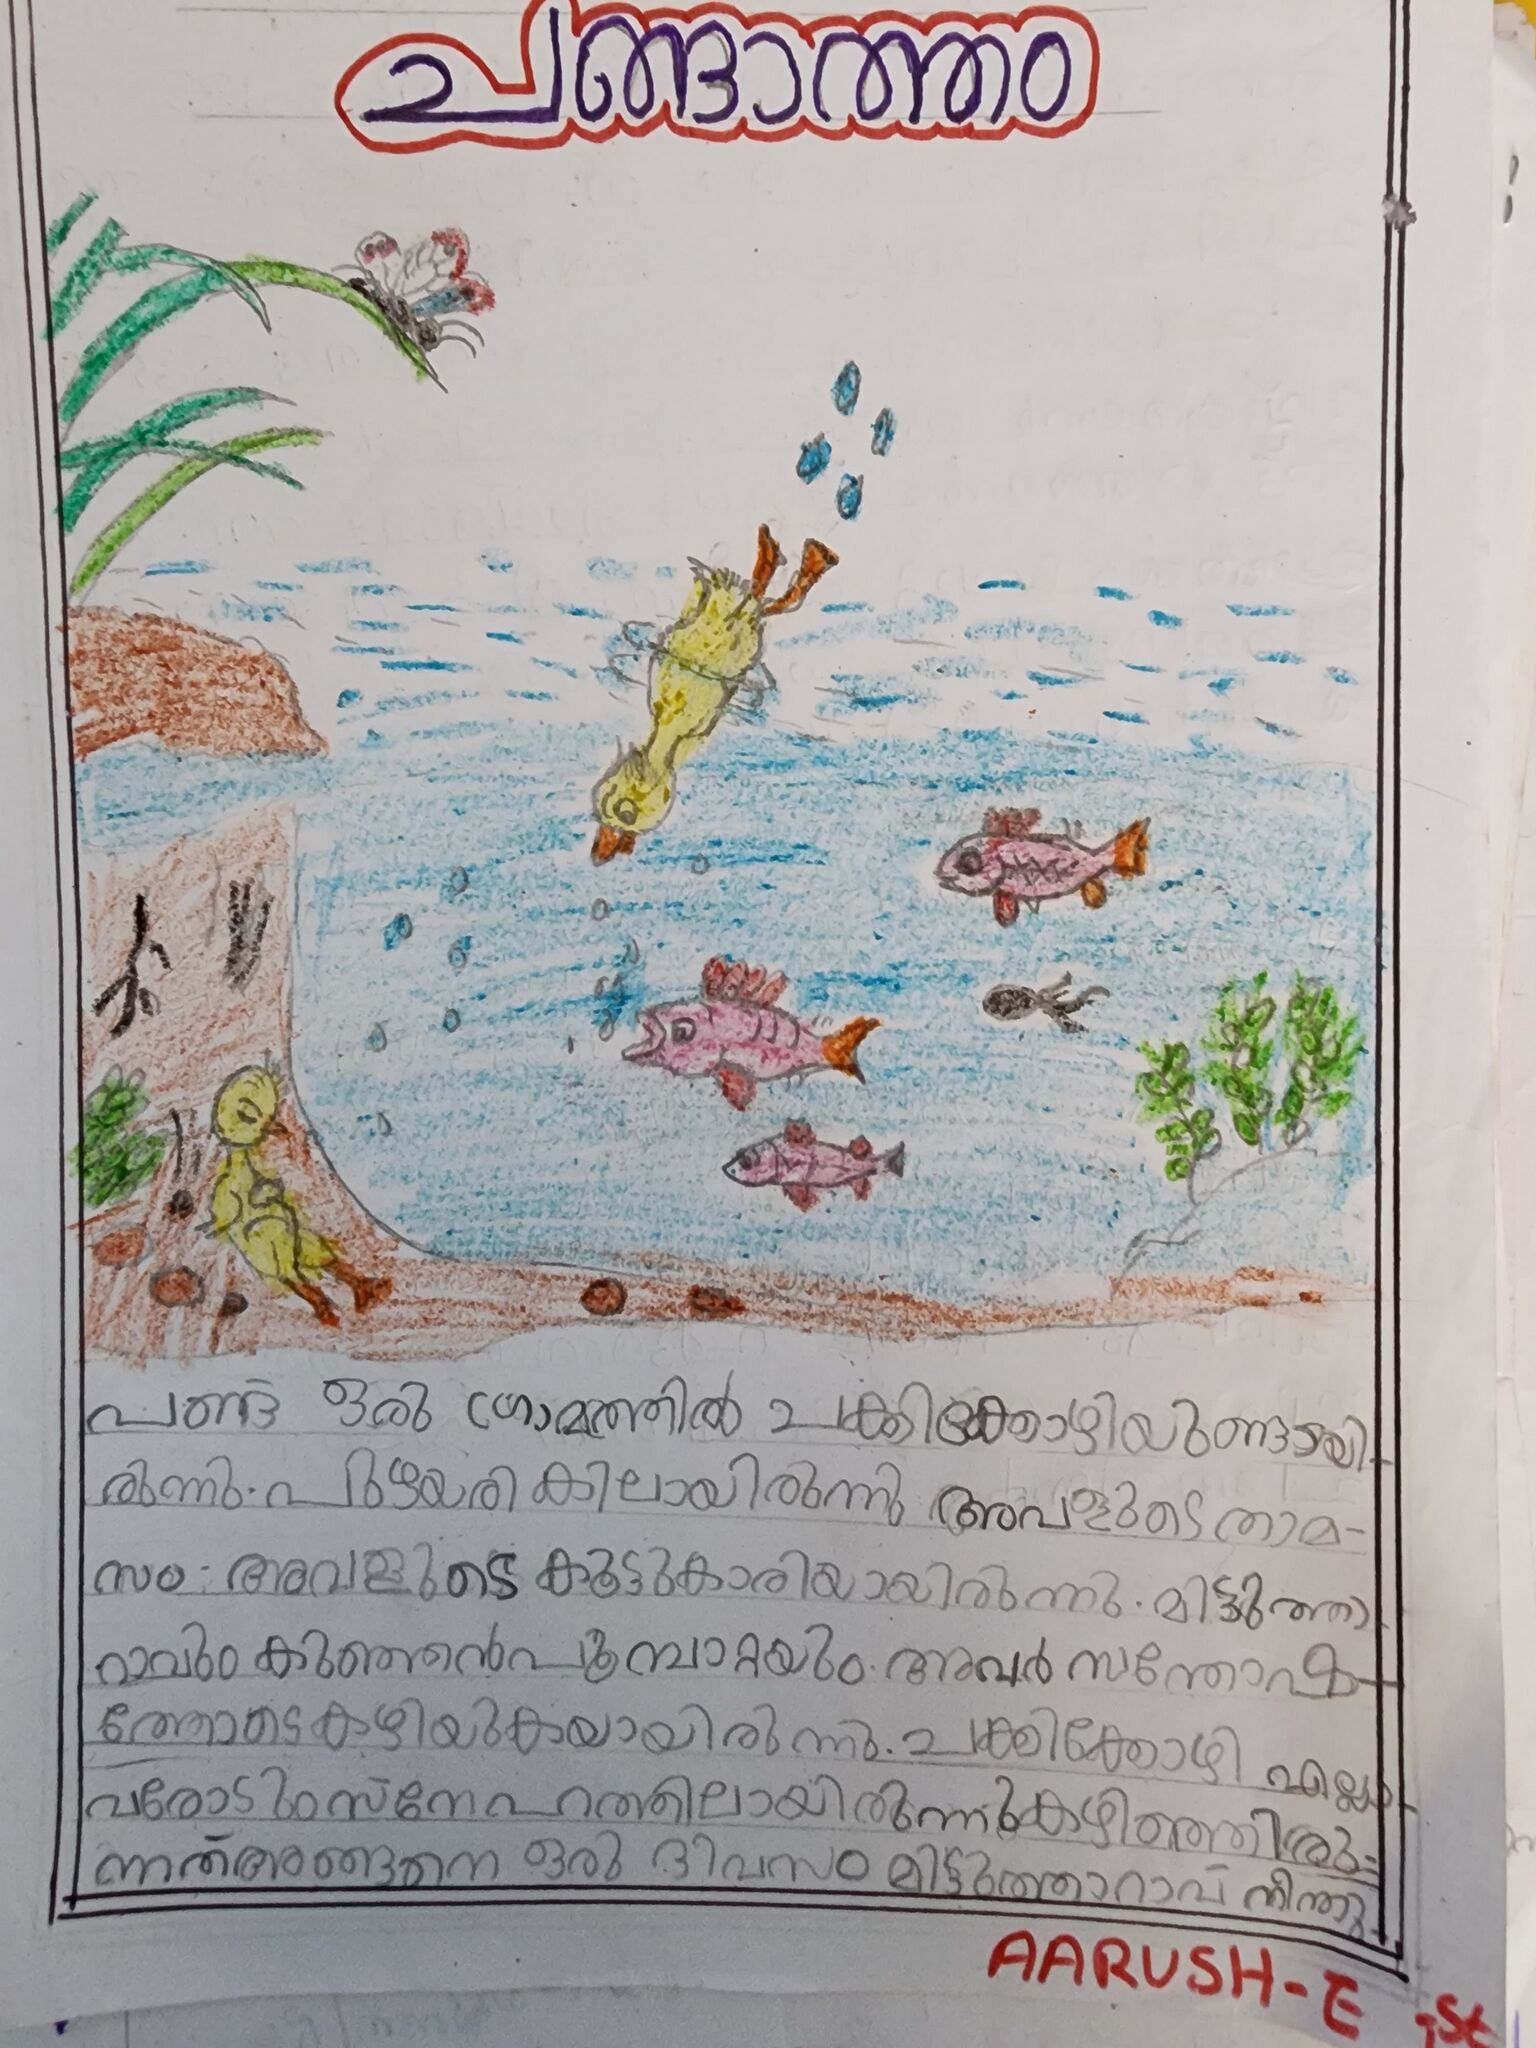 ചങ്ങാത്തം
പണ്ട് ഒരു ഗ്രാമത്തിൽ ചക്കിക്കോഴിയുണ്ടായി-
രുന്നു. പുഴയരികിലായിരുന്നു അവളുടെ താമ-
സം. അവളുടെ കൂട്ടുകാരിയായിരുന്നു. മിട്ടുത്താ
റാവും കുഞ്ഞൻപൂമ്പാറ്റയും. അവർ സന്തോഷ-
ത്തോടെ കഴിയുകയായിരുന്നു. ചക്കിക്കോഴി എല്ലാ-
വരോടും സ്നേഹത്തിലായിരുന്നു കഴിഞ്ഞിരു-
ന്നത് അങ്ങനെ ഒരു ദിവസം മിട്ടുത്താറാവ് നീന്തു-
AARUSH-E